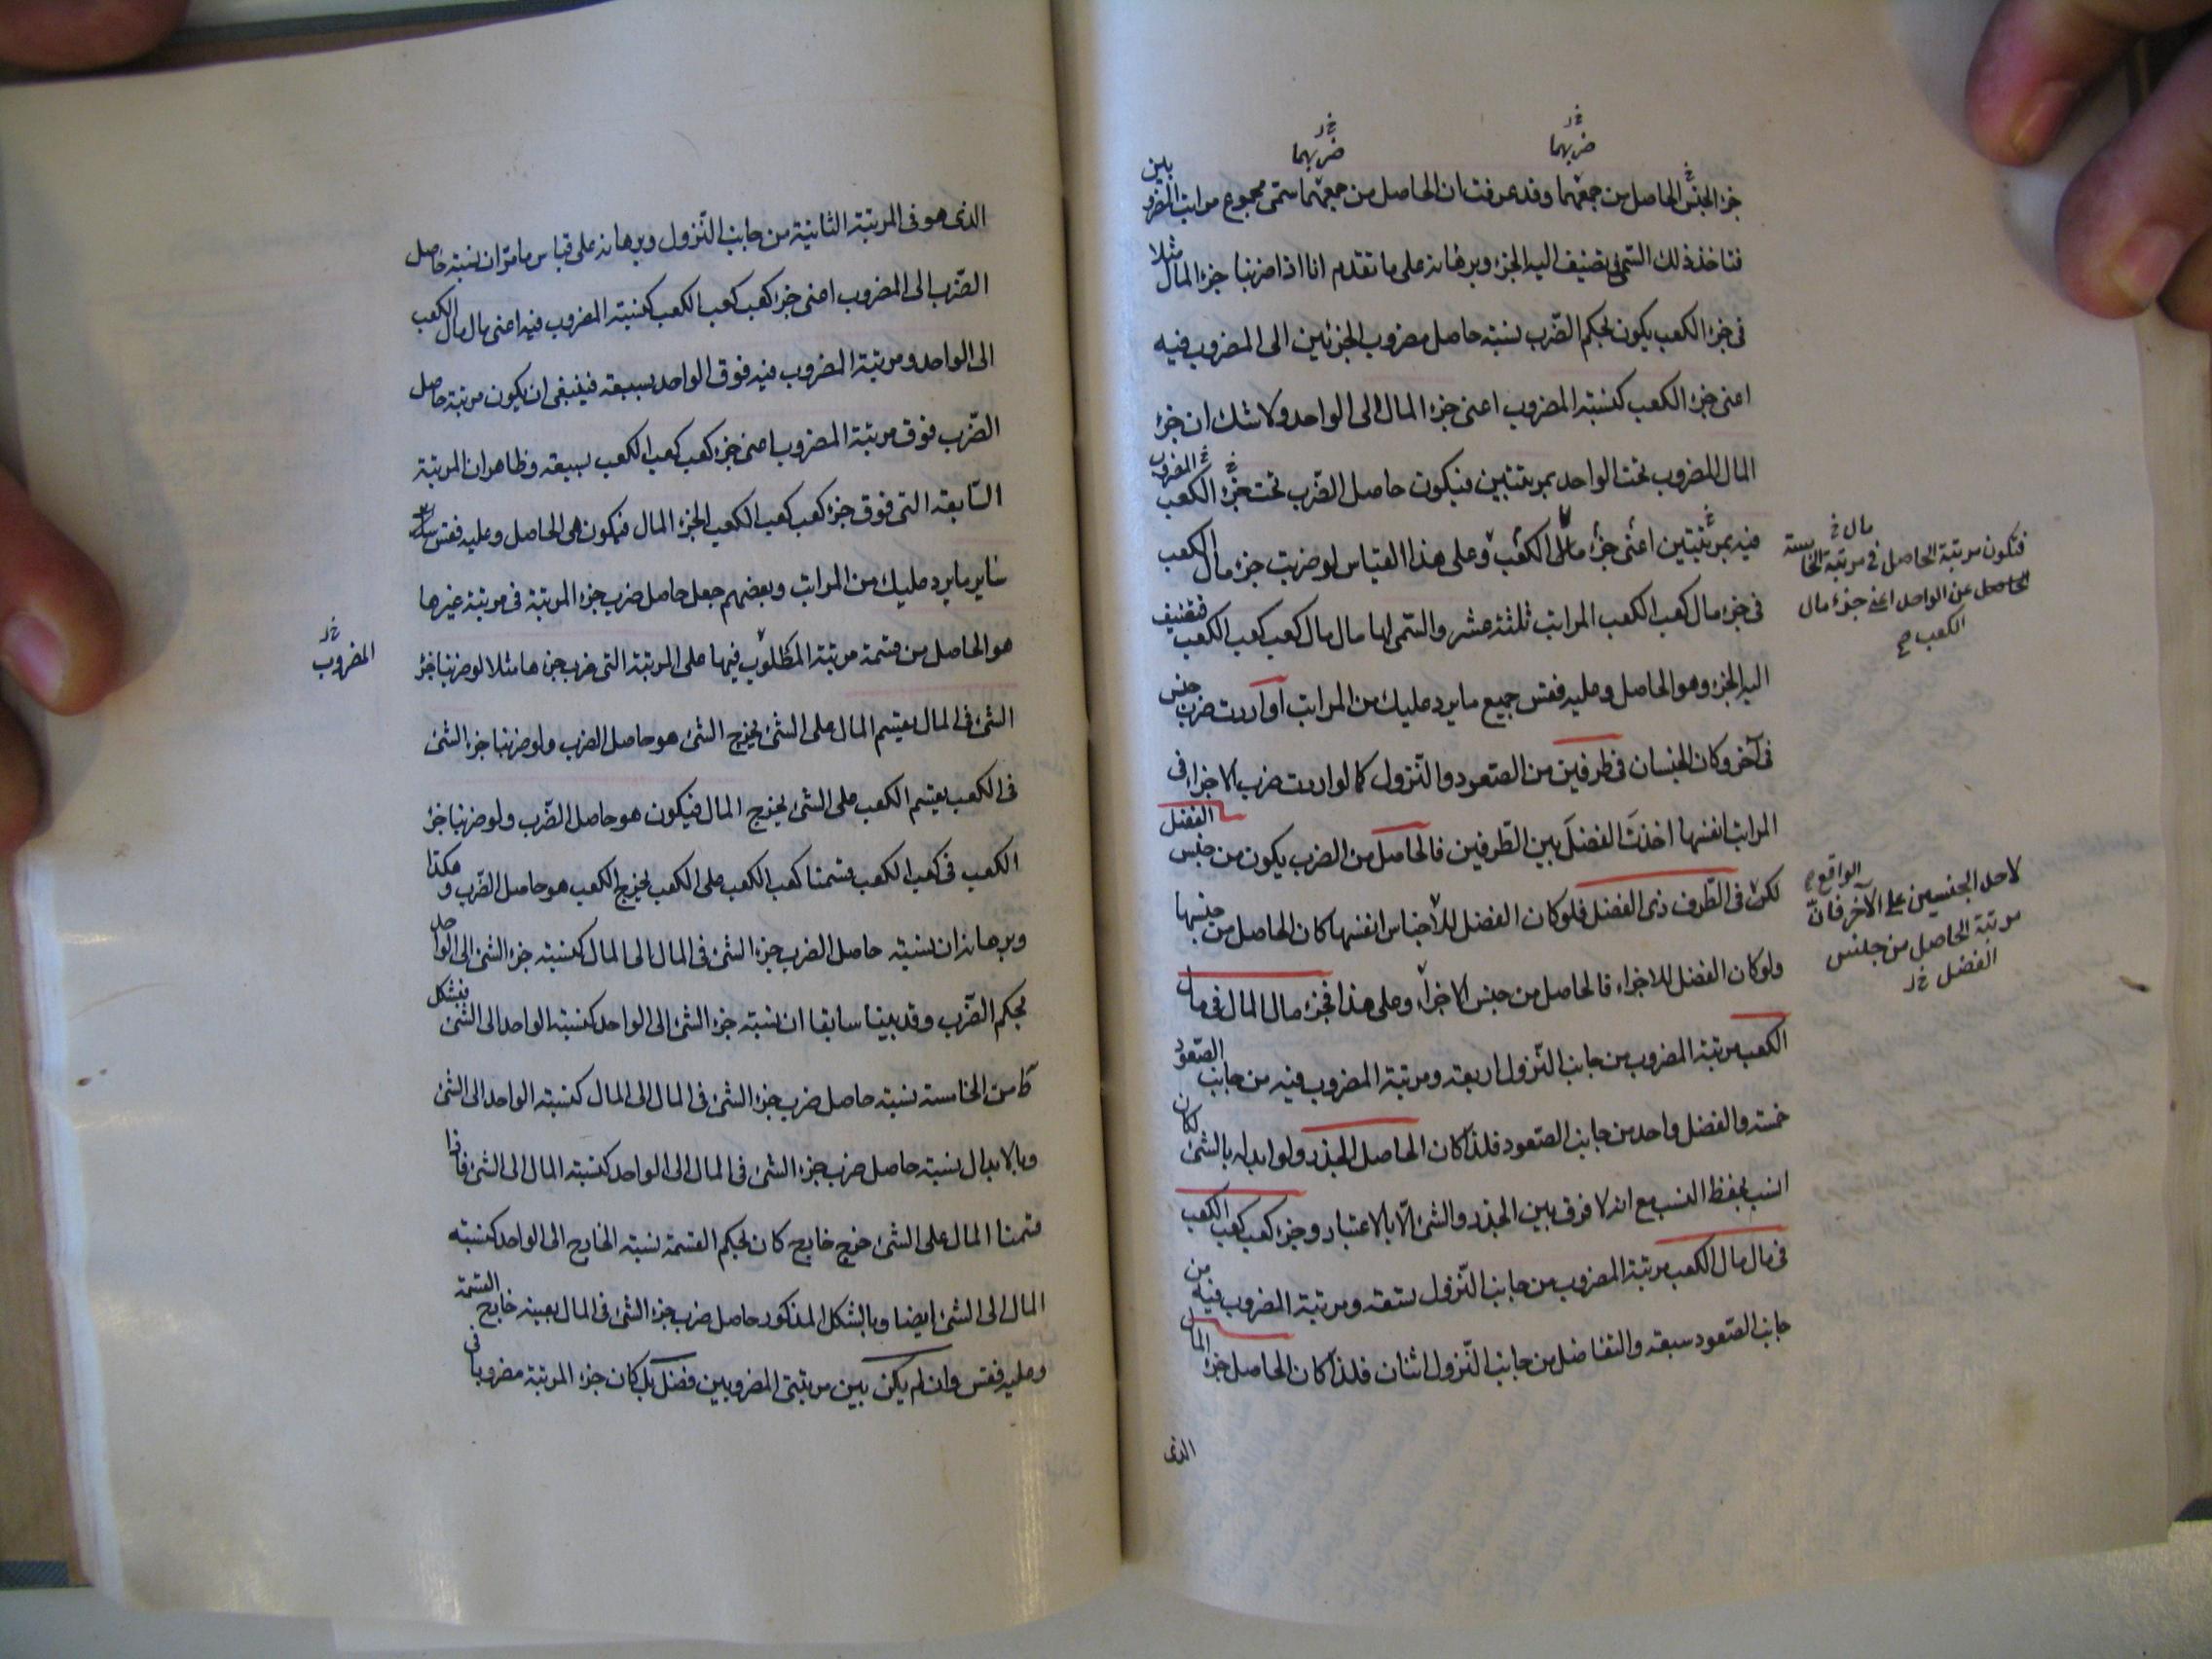 ضربهما خ‍
ضربهما خ‍
جزء الجنس الحاصل من جمعهما وقد عرفت ان الحاصل من جمعهما سمى مجموع مراتب المضروبين
فتاخذ ذلك السمى تضيف اليه الجزء وبرهانه على ما تقدم انا اذا ضربنا جزء المال مثلا
فى جزء الكعب يكون لحكم الضّرب نسبته حاصل مضروب الجزئين الى المضروب فيه
اعنى جزء الكعب كنسبة المضروب اعنى جزء المال الى الواحد ولا شك ان جزء
المال المضروب تحت الواحد بمرتبتين فيكون حاصل الضّرب تحت جزء الكعب المضروب
فيه بمرتبتين اعنى جزء مال الكعب وعلى هذا القياس لو ضربت جزء مال الكعب
فى جزء مال كعب الكعب المراتب ثلثة عشر والسّمى لها مال مال كعب كعب الكعب فتضيف
اليه الجزء وهو الحاصل وعليه فقس جميع ما يرد عليك من المراتب او اردت ضرب جنس
فى آخر وكان الجنسان فى طرفين من الصّعود والنّزول كما لو اردت ضرب الاجزاء فى
المراتب انفسها اخذت الفضل بين الطّرفين فالحاصل من الضرب يكون من جنس الفضل
لكن فى الطّرف ذى الفضل فلو كان الفضل للاجناس انفسها كان الحاصل من جنسها
ولو كان الفضل للاجزاء فالحاصل من جنس الاجزاء وعلى هذا فجزء مال المال فى مال
الكعب مرتبة المضروب من جانب النّزول اربعة ومرتبة المضروب فيه من جانب الصّعود
خمسة والفضل واحد من جانب الصّعود فلذا كان الحاصل الجذر ولو ابدله بالشئ لكان
انسب بحفظ النسب مع انه لا فرق بين الجذر والشئ الّا بالاعتبار وجزء كعب كعب الكعب
فى مال مال الكعب مرتبة المضروب من جانب النّزول تسعة ومرتبة المضروب فيه من
جانب الصّعود سبعة والتفاضل من جانب النّزول اثنان فلذا كان الحاصل جزء المال
الذى
مال خ‍
فتكون مرتبة الحاصل فى مرتبة الخامسة
الحاصل عن الواحد اعنى جزء مال
الكعب صح
الواقع
لاحد الجنسين على الآخر فانّ
مرتبة الحاصل من جنس
الفضل خ‍
الذى هو فى المرتبة الثانية من جانب النّزول وبرهانه على قياس ما مرّ ان نسبة حاصل
الضّرب الى المضروب اعنى جزء كعب كعب الكعب كنسبة المضروب فيه اعنى مال مال الكعب
الى الواحد ومرتبة المضروب فيه فوق الواحد بسبعة فينبغى ان يكون مرتبة حاصل
الضّرب فوق مرتبة المضروب اعنى جزء كعب كعب الكعب بسبعة وظاهر ان المرتبة
السّابعة التى فوق جزء كعب كعب الكعب الجزء المال فيكون هى الحاصل وعليه فقس
سائر ما يرد عليك من المراتب وبعضهم جعل حاصل ضرب جزء المرتبة فى مرتبة غيرها
هو الحاصل من قسمة مرتبة المطلوب فيها على المرتبة التى ضرب جزءها مثلا لو ضربنا جزء
المضروب خ‍
الشئ فى المال يقسم المال على الشئ يخرج الشئ هو حاصل الضرب ولو ضربنا جزء الشئ
فى الكعب يقسم الكعب على الشئ يخرج المال فيكون هو حاصل الضّرب ولو ضربنا جزء
الكعب فى كعب الكعب قسمنا كعب الكعب على الكعب يخرج الكعب هو حاصل الضّرب وهكذا
وبرهانه ان نسبة حاصل الضرب جزء الشئ فى المال الى المال كنسبة جزء الشئ الى الواحد
بحكم الضّرب وقد بينا سابقا ان نسبة جزء الشئ الى الواحد كنسبة الواحد الى الشئ فبشكل
كا من الخامسة نسبة حاصل ضرب جزء الشئ فى المال الى المال كنسبة الواحد الى الشئ
وبالابدال نسبة حاصل ضرب جزء الشئ فى المال الى الواحد كنسبة المال الى الشئ فاذا
قسمنا المال على الشئ خرج خارج كان لحكم القسمة نسبة الخارج الى الواحد كنسبة
المال الى الشئ ايضا وبالشكل المذكور حاصل ضرب جزء الشئ فى المال بعينه خارج القسمة
وعليه فقس وان لم يكن بين مرتبتى المضروبين فضل بل كان جزء المرتبة مضروبا فى